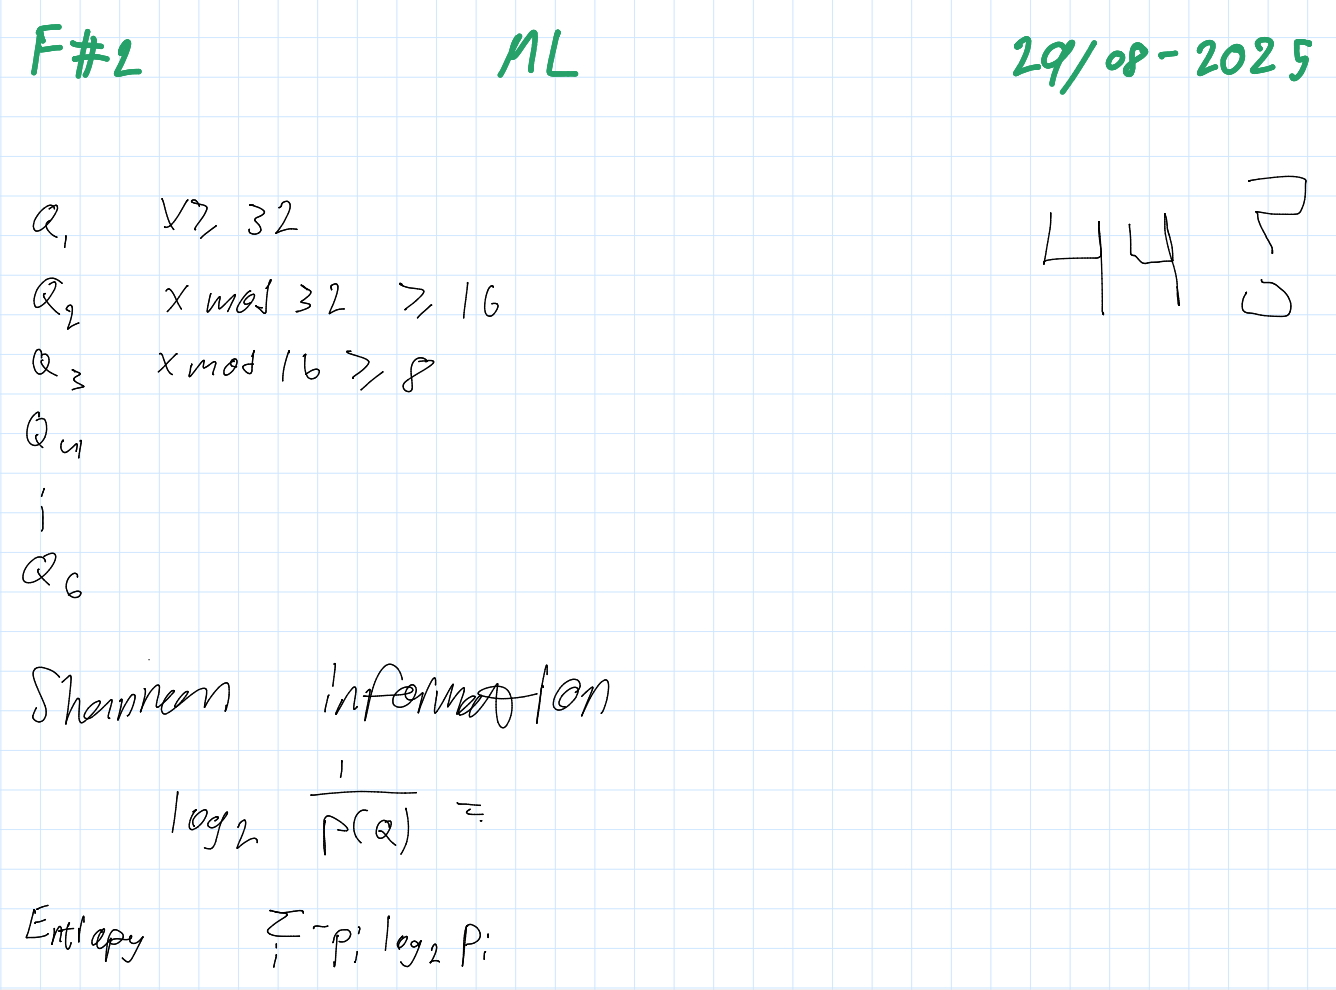 F#2 ML 29/08-2025
Q₁ X ≥ 32
44?
Q₂ x mod 32 ≥ 16
Q₃ x mod 16 ≥ 8
Q₄
⋮
Q₆
Shannon information
log₂ 1/p(Q) =
Entropy Σᵢ -pᵢ log₂ pᵢ